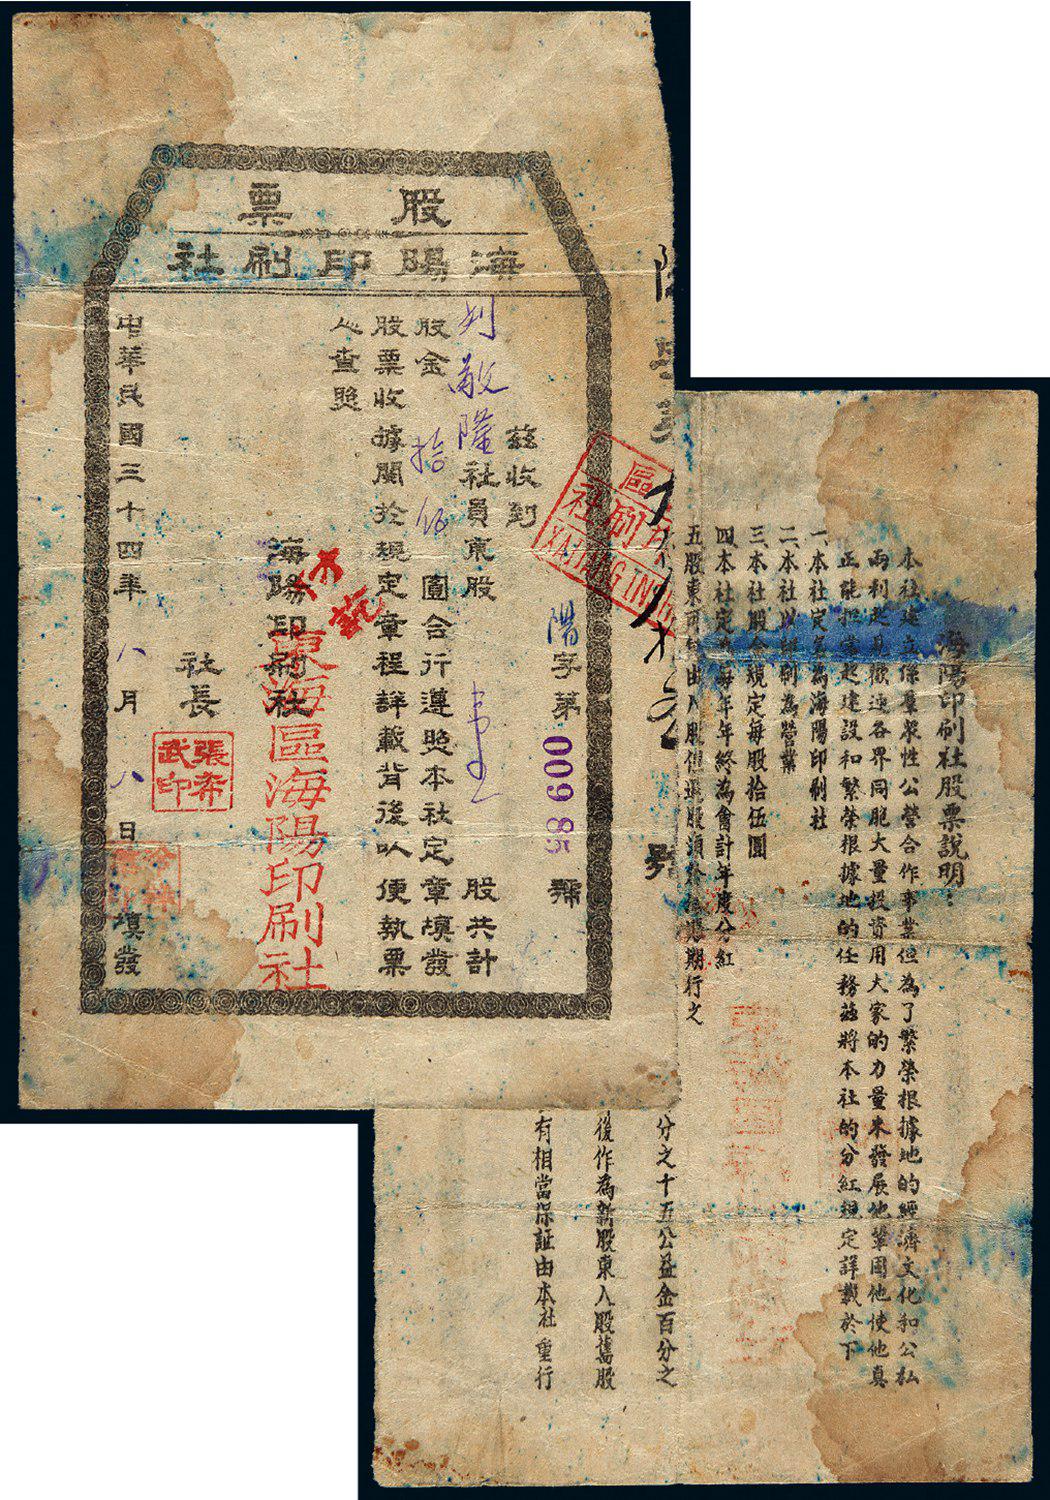 股票
海陽印刷社
階字第 00985 號
茲收到
刘敬隆社員東股 壹 股共計
股金 拾伍 圓合行遵照本社定章填發
股票收據關於規定章程詳載背後以便執票
人查照
海陽印刷社
東海區海陽印刷社
社長
張希武印
中華民國三十四年 八 月 八 日 填發
區
社刷
海陽印刷社股票說明：
本社建立係羣眾性公營合作事業但為了繁榮根據地的經濟文化和公私
兩利起見歡迎各界同胞大量投資用大家的力量來發展他鞏固他使他真
正能担當起建設和繁榮根據地的任務茲將本社的分紅規定詳載於下
一 本社定名為海陽印刷社
二 本社以印刷為營業
三 本社股金規定每股拾伍圓
四 本社定為每年年終為會計年度分紅
五 股東可自由入股但退股須於
期行之
分之十五公益金百分之
後作為新股東入股舊股
有相當保証由本社重行